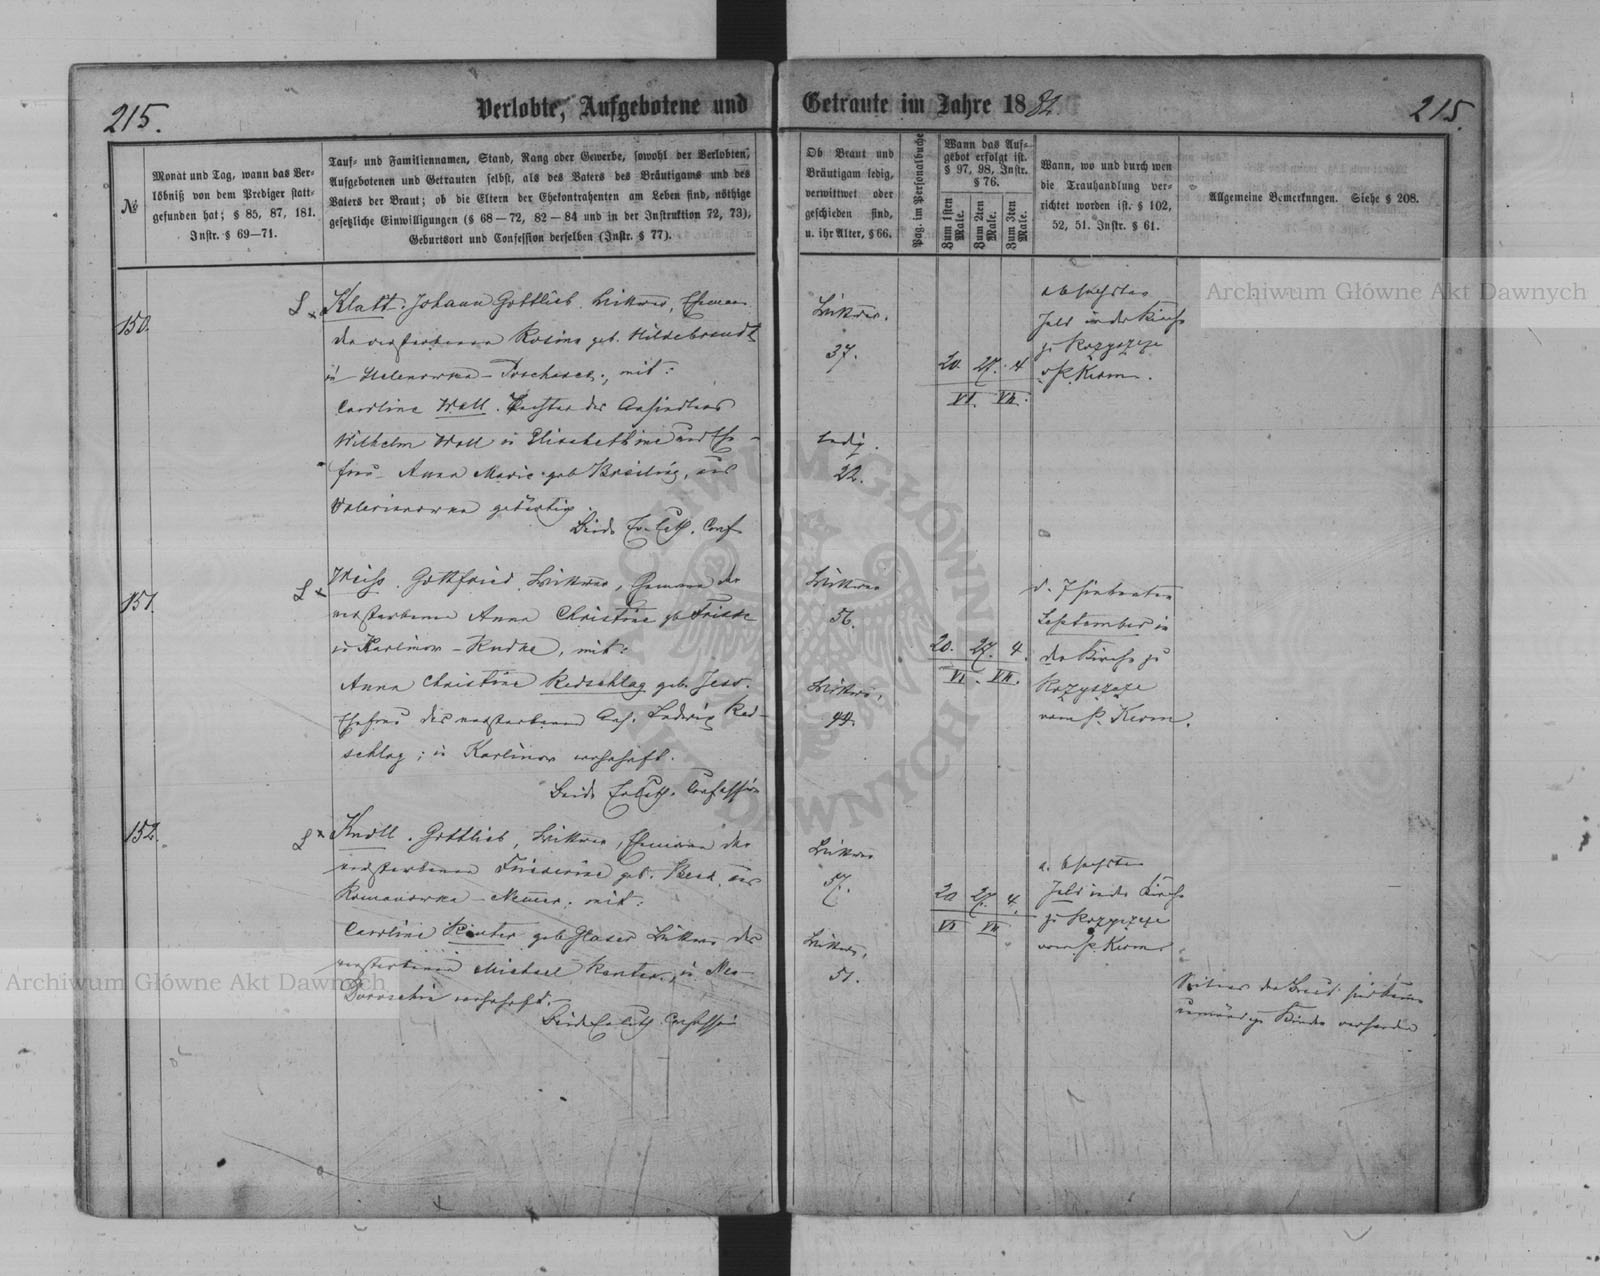 215.
Verlobte, Aufgebotene und Getraute im Jahre 1882.
215.
№
Monat und Tag, wann das Ver-
löbniß von dem Prediger statt-
gefunden hat; § 85, 87, 181.
Instr. § 69—71.
Tauf- und Familiennamen, Stand, Rang oder Gewerbe, sowohl der Verlobten,
Aufgebotenen und Getrauten selbst, als des Vaters des Bräutigams und des
Vaters der Braut; ob die Eltern der Ehekontrahenten am Leben sind, nöthige
gesetzliche Einwilligungen (§ 68—72, 82—84 und in der Instruktion 72, 73),
Geburtsort und Confession derselben (Instr. § 77).
Ob Braut und
Bräutigam ledig,
verwittwet oder
geschieden sind,
u. ihr Alter, § 66.
Pag. im Personalbuche
Wann das Auf-
gebot erfolgt ist.
§ 97, 98, Instr.
§ 76.
Zum 1sten Male.
Zum 2ten Male.
Zum 3ten Male.
Wann, wo und durch wen
die Trauhandlung ver-
richtet worden ist. § 102,
52, 51. Instr. § 61.
Allgemeine Bemerkungen. Siehe § 208.
150.
Klatt. Johann Gottlieb, Wittwer, Ehemann
der verstorbenen Rosine geb. Hildebrandt
in Helenowka, mit:
Caroline Woll. Tochter des Ansiedlers
Wilhelm Woll in und Ehe-
frau Anna Marie geb. Breiling, aus
Walerianowka gebürtig.
Beide Ev. Luth. Conf.
Wittwer.
37.
Ledig.
22.
20. 27. 4.
VI. VII.
Juli in der Kirche
zu Rozyszcze
v. P. Kerm.
151.
Weiss. Gottfried, Wittwer, Ehemann der
verstorbenen Anna Christine geb. Friske
in Karlinow-Rudke, mit:
Anna Christine Redschlag geb. Jesw.
Ehefrau des verstorbenen Ans. Ludwig Red-
schlag; in Karlinow wohnhaft.
Beide Ev. Luth. Confession
Wittwer
56.
Wittwe,
44.
20. 27. 4.
VI. VII.
September in
der Kirche zu
Rozyszcze
vom P. Kerm.
152.
Knoll. Gottlieb, Wittwer, Ehemann der
verstorbenen geb. aus
Romanowka, mit:
Caroline Kanter geb. Glaser Wittwe des
verstorbenen Michael Kanter, in Neu-
Dorosini wohnhaft.
Beide Ev. Luth. Confession
Wittwer
57.
Wittwe,
51.
20. 27. 4.
VI VII
Juli in der Kirche
zu Rozyszcze
vom P. Kerm
Seitens der Braut sind keine
unmündige Kinder vorhanden
Archiwum Główne Akt Dawnych
Archiwum Główne Akt Dawnych
Archiwum Główne Akt Dawnych
ARCHIWUM GŁÓWNE AKT DAWNYCH